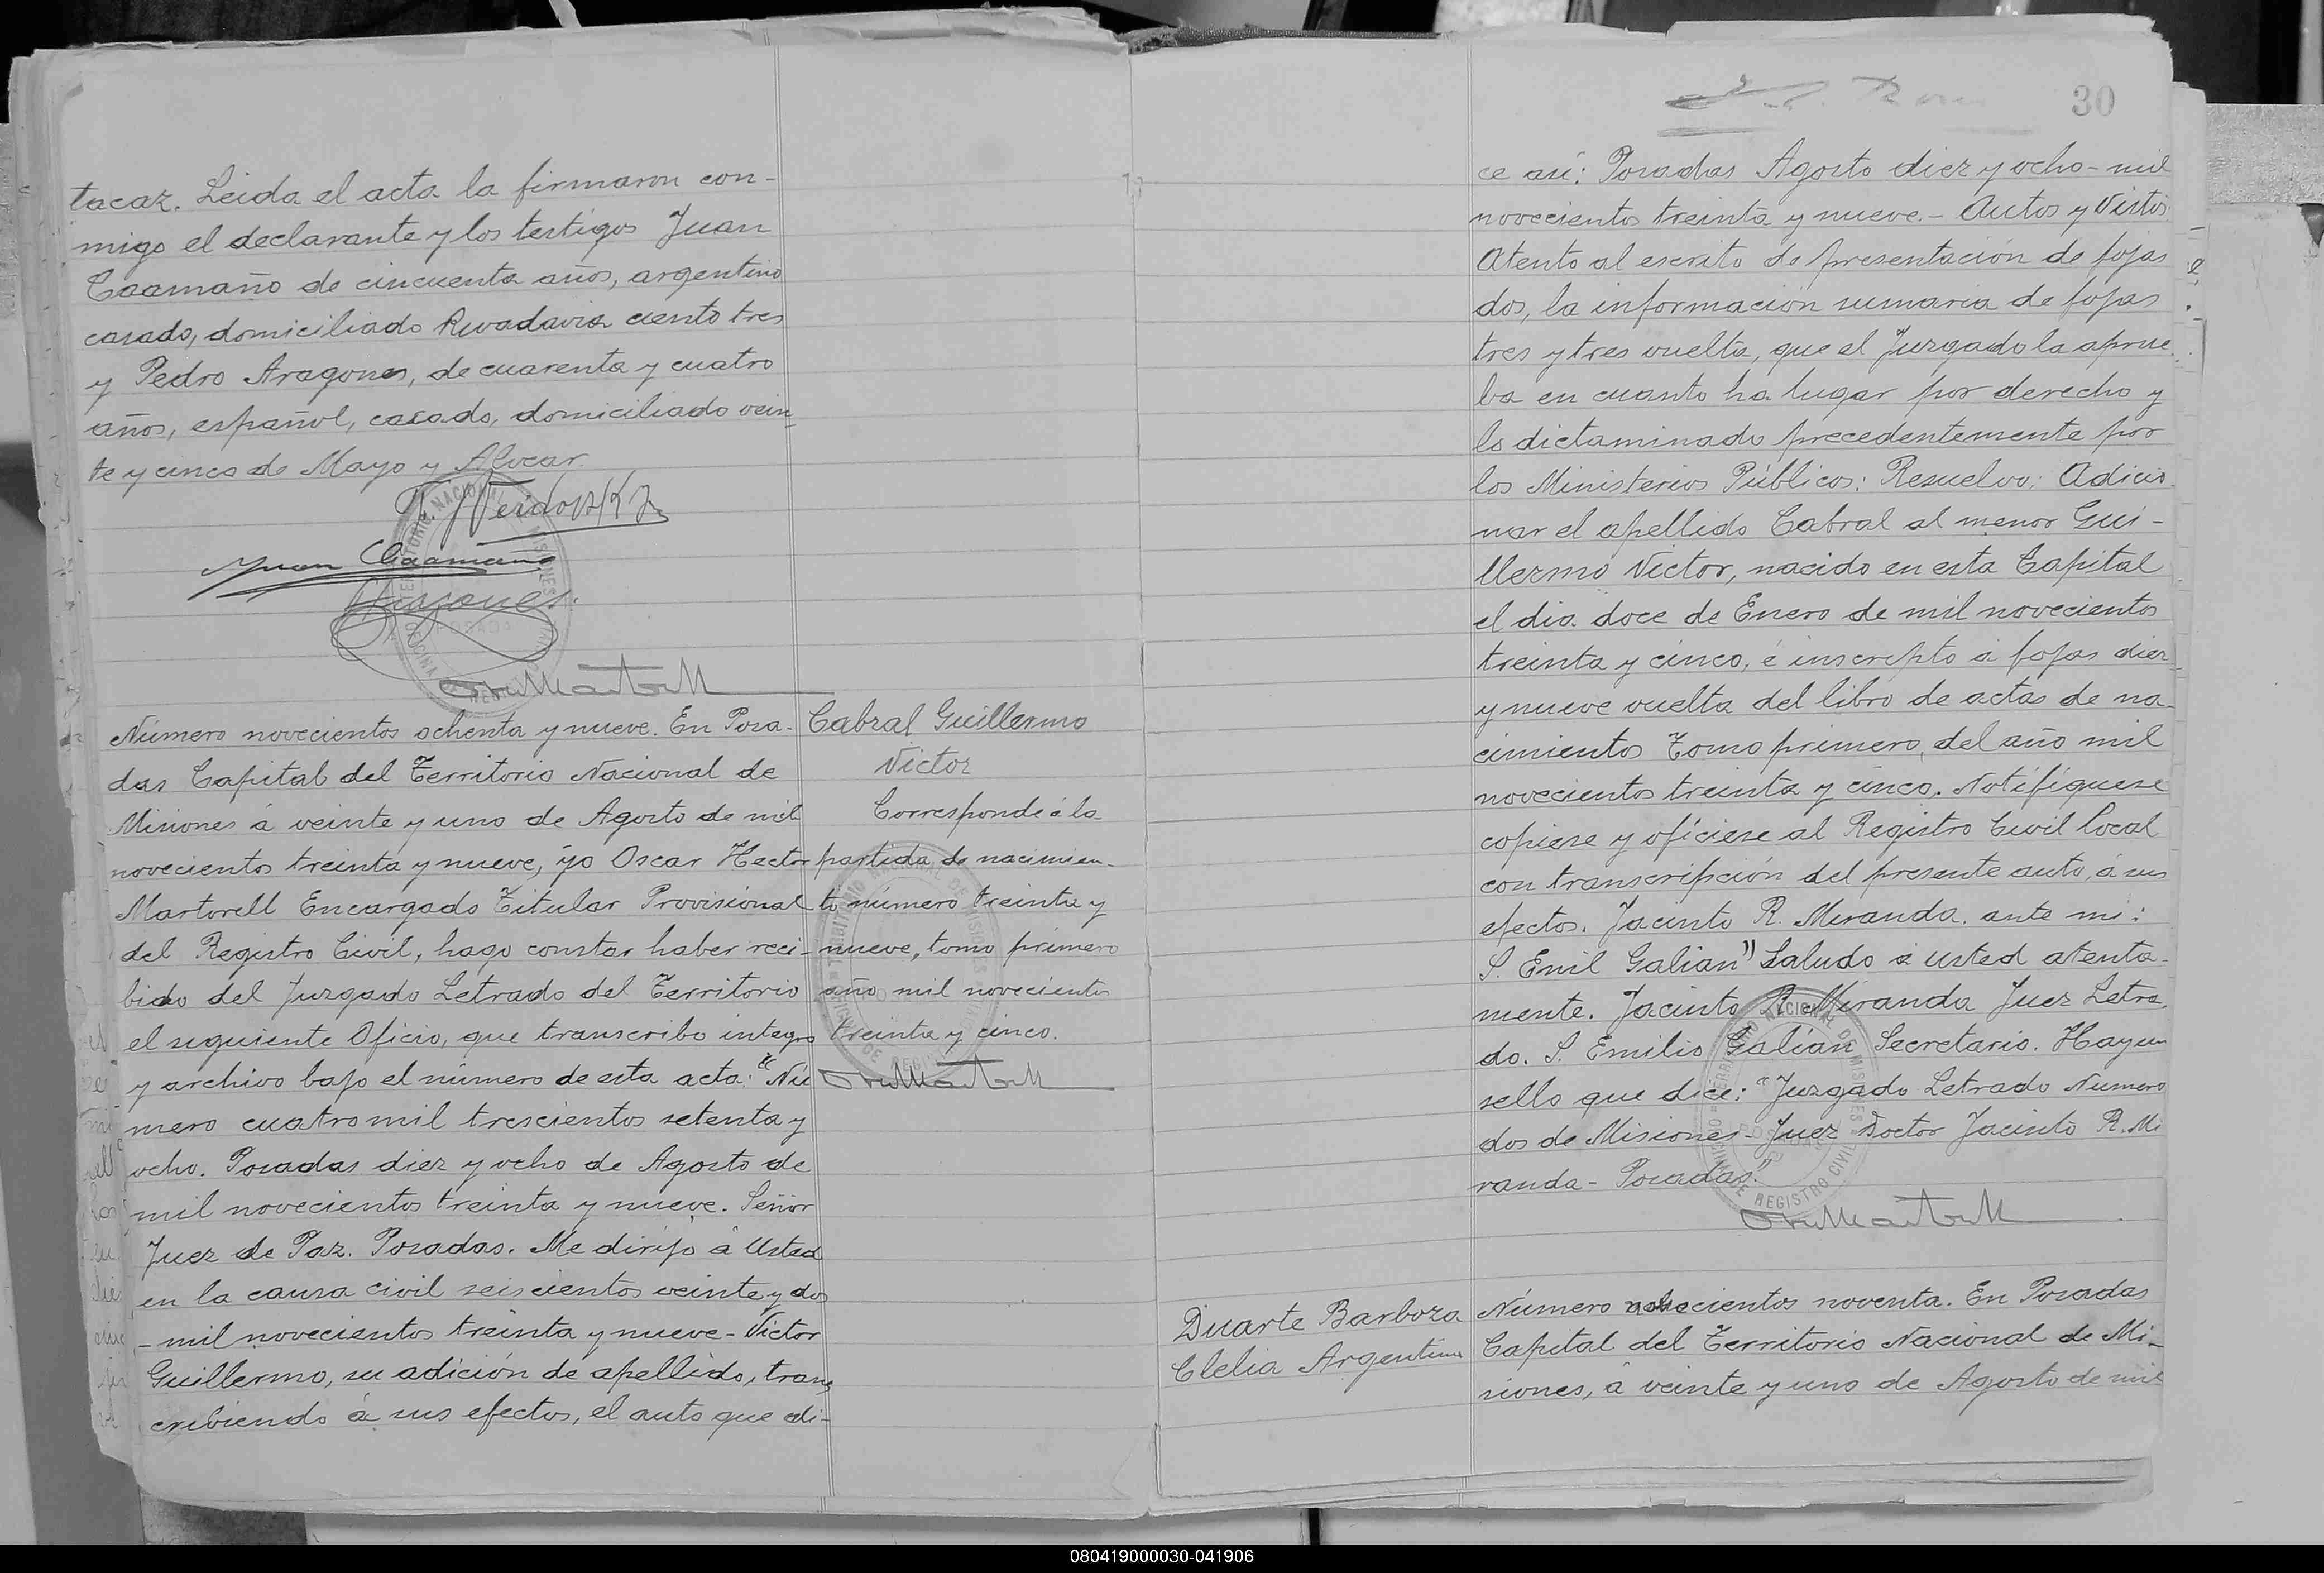 tacar. Leida el acta la firmaron con-
migo el declarante y los testigos Juan
Caamaño de cincuenta años, argentino
casado, domiciliado Rivadavia ciento tres
y Pedro Aragones, de cuarenta y cuatro
años, español, casado, domiciliado vein
te y cinco de Mayo y Alvear.
Juan Caamaño
Aragones
Número novecientos ochenta y nueve. En Posa-
das Capital del Territorio Nacional de
Misiones á veinte y uno de Agosto de mil
novecientos treinta y nueve, yo Oscar Hector
Martorell Encargado Titular Provisional
del Registro Civil, hago constar haber reci-
bido del Juzgado Letrado del Territorio
el siguiente Oficio, que transcribo integro
y archivo bajo el número de esta acta: "Nú
mero cuatro mil trescientos setenta y
ocho. Posadas diez y ocho de Agosto de
mil novecientos treinta y nueve. Señor
Juez de Paz. Posadas. Me dirijo á Usted
en la causa civil seiscientos veinte y dos
- mil novecientos treinta y nueve - Victor
Guillermo, su adición de apellido, trans
cribiendo á sus efectos, el auto que di-
Cabral Guillermo
Victor
Corresponde á la
partida de nacimien-
to número treinta y
nueve, tomo primero
año mil novecientos
treinta y cinco.
30
ce así: Posadas Agosto diez y ocho - mil
novecientos treinta y nueve. - Autos y Vistos:
Atento al escrito de presentación de fojas
dos, la información sumaria de fojas
tres y tres vuelta, que el Juzgado la aprue
ba en cuanto ha lugar por derecho y
lo dictaminado precedentemente por
los Ministerios Públicos: Resuelvo: Adicio
nar el apellido Cabral al menor Gui-
llermo Victor, nacido en esta Capital
el dia doce de Enero de mil novecientos
treinta y cinco, é inscripto á fojas diez
y nueve vuelta del libro de actas de na-
cimientos Tomo primero, del año mil
novecientos treinta y cinco. Notifíquese
copiese y ofíciese al Registro Civil local
con transcripción del presente auto, á sus
efectos. Jacinto R. Miranda. ante mi:
S. Emil Galian" Saludo á usted atenta-
mente. Jacinto R. Miranda Juez Letra
do. S. Emilio Galián Secretario. Hay un
sello que dice: "Juzgado Letrado Numero
dos de Misiones - Juez Doctor Jacinto R. Mi
randa - Posadas."
Duarte Barboza
Clelia Argentina
Número novecientos noventa. En Posadas
Capital del Territorio Nacional de Mi-
siones, á veinte y uno de Agosto de mil
080419000030-041906